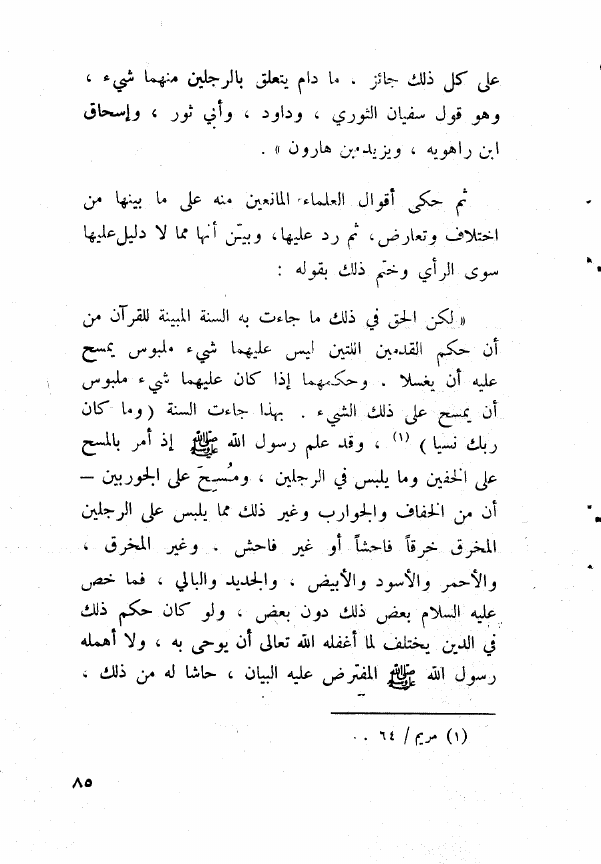 على كل ذلك جائز . ما دام يتعلق بالرجلين منهما شيء ،
وهو قول سفيان الثوري ، وداود ، وأبي ثور ، وإسحاق
ابن راهويه ، ويزيد بن هارون » .
ثم حكى أقوال العلماء المانعين منه على ما بينها من
اختلاف وتعارض، ثم رد عليها، وبيّن أنها مما لا دليل عليها
سوى الرأي وختم ذلك بقوله :
« لكن الحق في ذلك ما جاءت به السنة المبينة للقرآن من
أن حكم القدمين اللتين ليس عليهما شيء ملبوس يمسح
عليه أن يغسلا . وحكمهما إذا كان عليهما شيء ملبوس
أن يمسح على ذلك الشيء . بهذا جاءت السنة ( وما كان
ربك نسيا ) (١) ، وقد علم رسول الله ﷺ إذ أمر بالمسح
على الخفين وما يلبس في الرجلين ، ومُسِحَ على الجوربين –
أن من الخفاف والجوارب وغير ذلك مما يلبس على الرجلين
المخرق خرقاً فاحشاً أو غير فاحش . وغير المخرق ،
والأحمر والأسود والأبيض ، والجديد والبالي ، فما خص
عليه السلام بعض ذلك دون بعض ، ولو كان حكم ذلك
في الدين يختلف لما أغفله الله تعالى أن يوحى به ، ولا أهمله
رسول الله ﷺ المفترض عليه البيان ، حاشا له من ذلك ،
(١) مريم / ٦٤ . .
٨٥